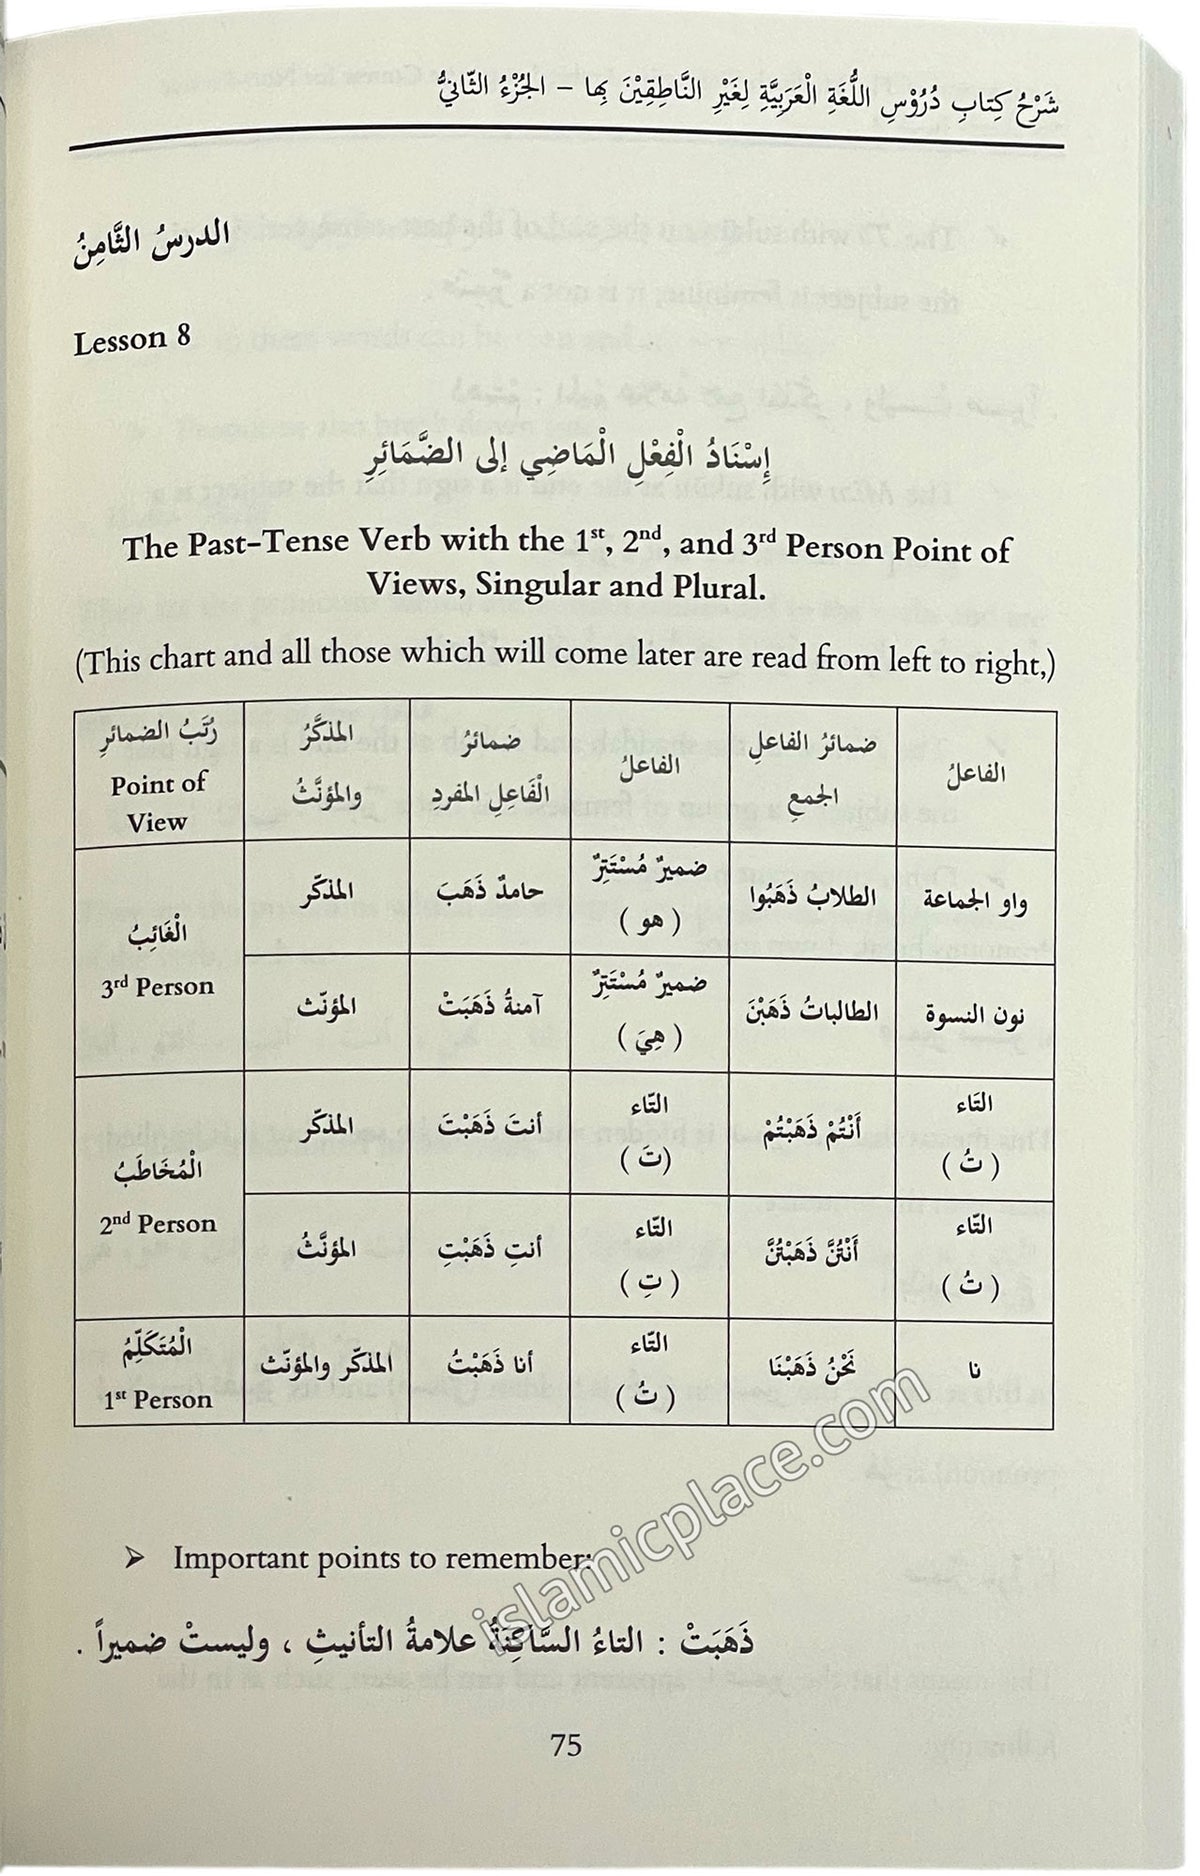 شَرْحُ كِتابِ دُرُوْسِ اللُّغَةِ الْعَرَبِيَّةِ لِغَيْرِ النَّاطِقِيْنَ بِها – الجُزْءُ الثّانيُّ
الدرسُ الثَّامِنُ
Lesson 8
إِسْنَادُ الْفِعْلِ الْمَاضِي إلى الضَّمَائِرِ
The Past-Tense Verb with the 1st, 2nd, and 3rd Person Point of
Views, Singular and Plural.
(This chart and all those which will come later are read from left to right,)
رُتَبُ الضمائرِ Point of View | المذكَّرُ والمؤنَّثُ | ضمائرُ الْفَاعِلِ المفردِ | الفاعلُ | ضمائرُ الفاعلِ الجمعِ | الفاعلُ
الْغَائِبُ 3rd Person | المذكّر | حامدٌ ذَهَبَ | ضميرٌ مُسْتَتِرٌ ( هو ) | الطلابُ ذَهَبُوا | واو الجماعة
المؤنّث | آمنةُ ذَهَبَتْ | ضميرٌ مُسْتَتِرٌ ( هِيَ ) | الطالباتُ ذَهَبْنَ | نون النسوة
الْمُخَاطَبُ 2nd Person | المذكّر | أنتَ ذَهَبْتَ | التّاء (تَ ) | أَنْتُمْ ذَهَبْتُمْ | التَاء ( تُ )
المؤنَّثُ | أنتِ ذَهَبْتِ | التّاء ( تِ ) | أَنْتُنَّ ذَهَبْتُنَّ | التّاء ( تُ )
الْمُتَكَلِّمُ 1st Person | المذكّر والمؤنّث | أنا ذَهَبْتُ | التّاء ( تُ ) | نَحْنُ ذَهَبْنَا | نا
➢ Important points to remember:
ذَهَبَتْ : التاءُ السَّاكِنَةُ علامةُ التأنيثِ ، وليستْ ضميراً .
75
islamicplace.com